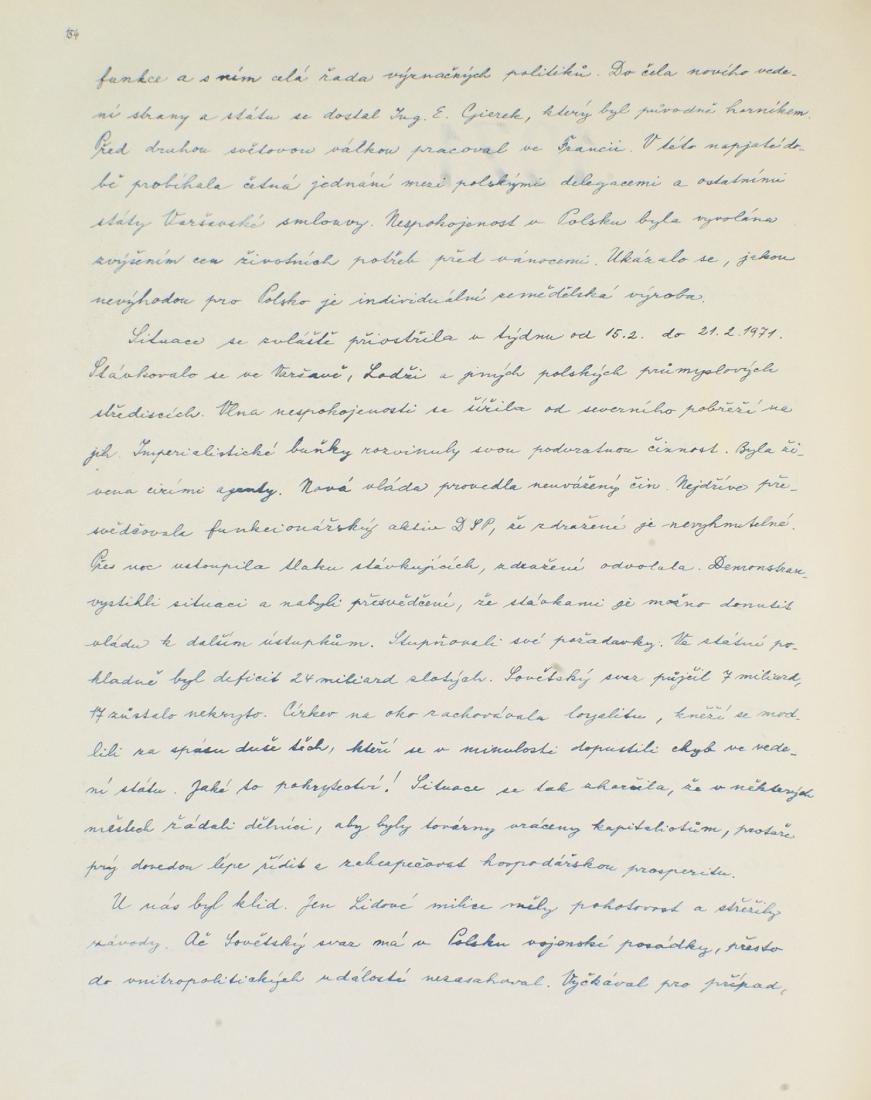 84
funkce a s ním celá řada význačných politiků. Do čela nového vede-
ní strany a státu se dostal Ing. E. Gierek, který byl původně horníkem.
Před druhou světovou válkou pracoval ve Francii. V této napjaté do-
bě probíhala četná jednání mezi polskými delegacemi a ostatními
státy Varšavské smlouvy. Nespokojenost v Polsku byla vyvolána
zvýšením cen životních potřeb před vánocemi. Ukázalo se, jakou
nevýhodou pro Polsko je individuální zemědělská výroba.
Situace se zvláště přiostřila v týdnu od 15.2. do 21.2.1971.
Stávkovalo se ve Varšavě, Lodži a jiných polských průmyslových
střediscích. Vlna nespokojenosti se šířila od severního pobřeží na
jih. Imperialistické buňky rozvinuly svou podvratnou činnost. Byla ži-
vena cizími agenty. Nová vláda provedla neuvážený čin. Nejdříve pře-
svědčovala funkcionářský aktiv DSP, že zdražení je nevyhnutelné.
Přes noc ustoupila tlaku stávkujících, zdražení odvolala. Demonstran-
vystihli situaci a nabyli přesvědčení, že stávkami je možno donutit
vládu k dalším ústupkům. Stupňovali své požadavky. Ve státní po-
kladně byl deficit 24 miliard zlotých. Sovětský svaz půjčil 7 miliard,
17 zůstalo nekryto. Církev na oko zachovávala loyalitu, kněží se mod-
lili za spásu duše těch, kteří se v minulosti dopustili chyb ve vede-
ní státu. Jaké to pokrytectví! Situace se tak zhoršila, že v některých
městech žádali dělníci, aby byly továrny vráceny kapitalistům, protože
prý dovedou lépe řídit a zabezpečovat hospodářskou prosperitu.
U nás byl klid. Jen Lidové milice měly pohotovost a střežily
závody. Ač Sovětský svaz má v Polsku vojenské posádky, přesto
do vnitropolitických událostí nezasahoval. Vyčkával pro případ,